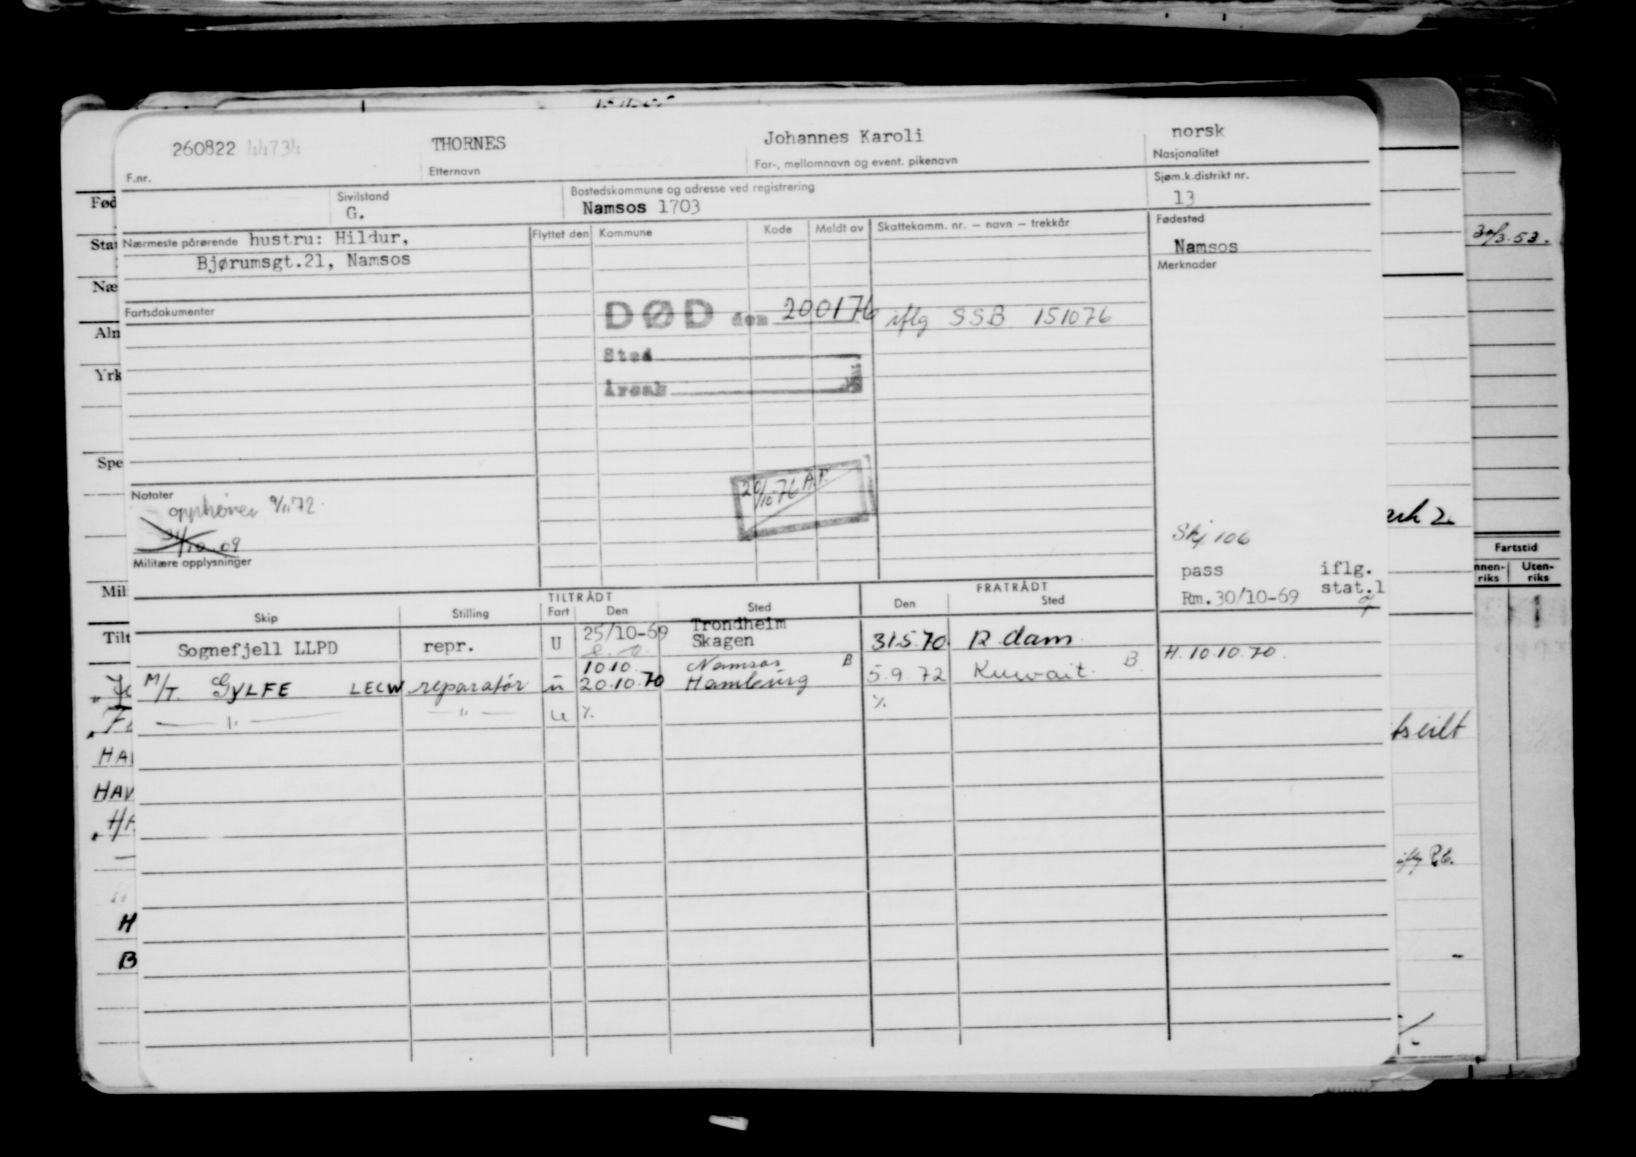 260822 44734 THORNES Johannes Karoli norsk
F.nr. Etternavn For-, mellomnavn og event. pikenavn Nasjonalitet
Sivilstand Bostedskommune og adresse ved registrering Sjøm.k.distrikt nr.
G. Namsos 1703 13
Nærmeste pårørende hustru: Hildur, Flyttet den Kommune Kode Meldt av Skattekomm. nr. – navn – trekkår Fødested
Bjørumsgt.21, Namsos Namsos
Merknader
Fartsdokumenter
DØD den 200176 iflg SSB 151076
Sted
Årsak
20/10-76 A.F.
Notater
opphører 9/11 72
31/10.09
Militære opplysninger
Skj 106
pass iflg.
Rm.30/10-69 stat.l
TILTRÅDT FRATRÅDT
Skip Stilling Fart Den Sted Den Sted
Sognefjell LLPD repr. U 25/10-69 Trondheim Skagen 31.5.70 R dam
10.10. Namsos B H. 10.10.70.
M/T. GYLFE LECW reparatør u 20.10.70 Hamburg 5.9.72 Kuwait. B.
— " — — " — u ٪ ٪
Fød
Sta
Næ
Aln
Yrk
Spe
Mil
Tilt
HA
HAV
H
B
30/3.53.
Fartstid
Uten-
riks riks